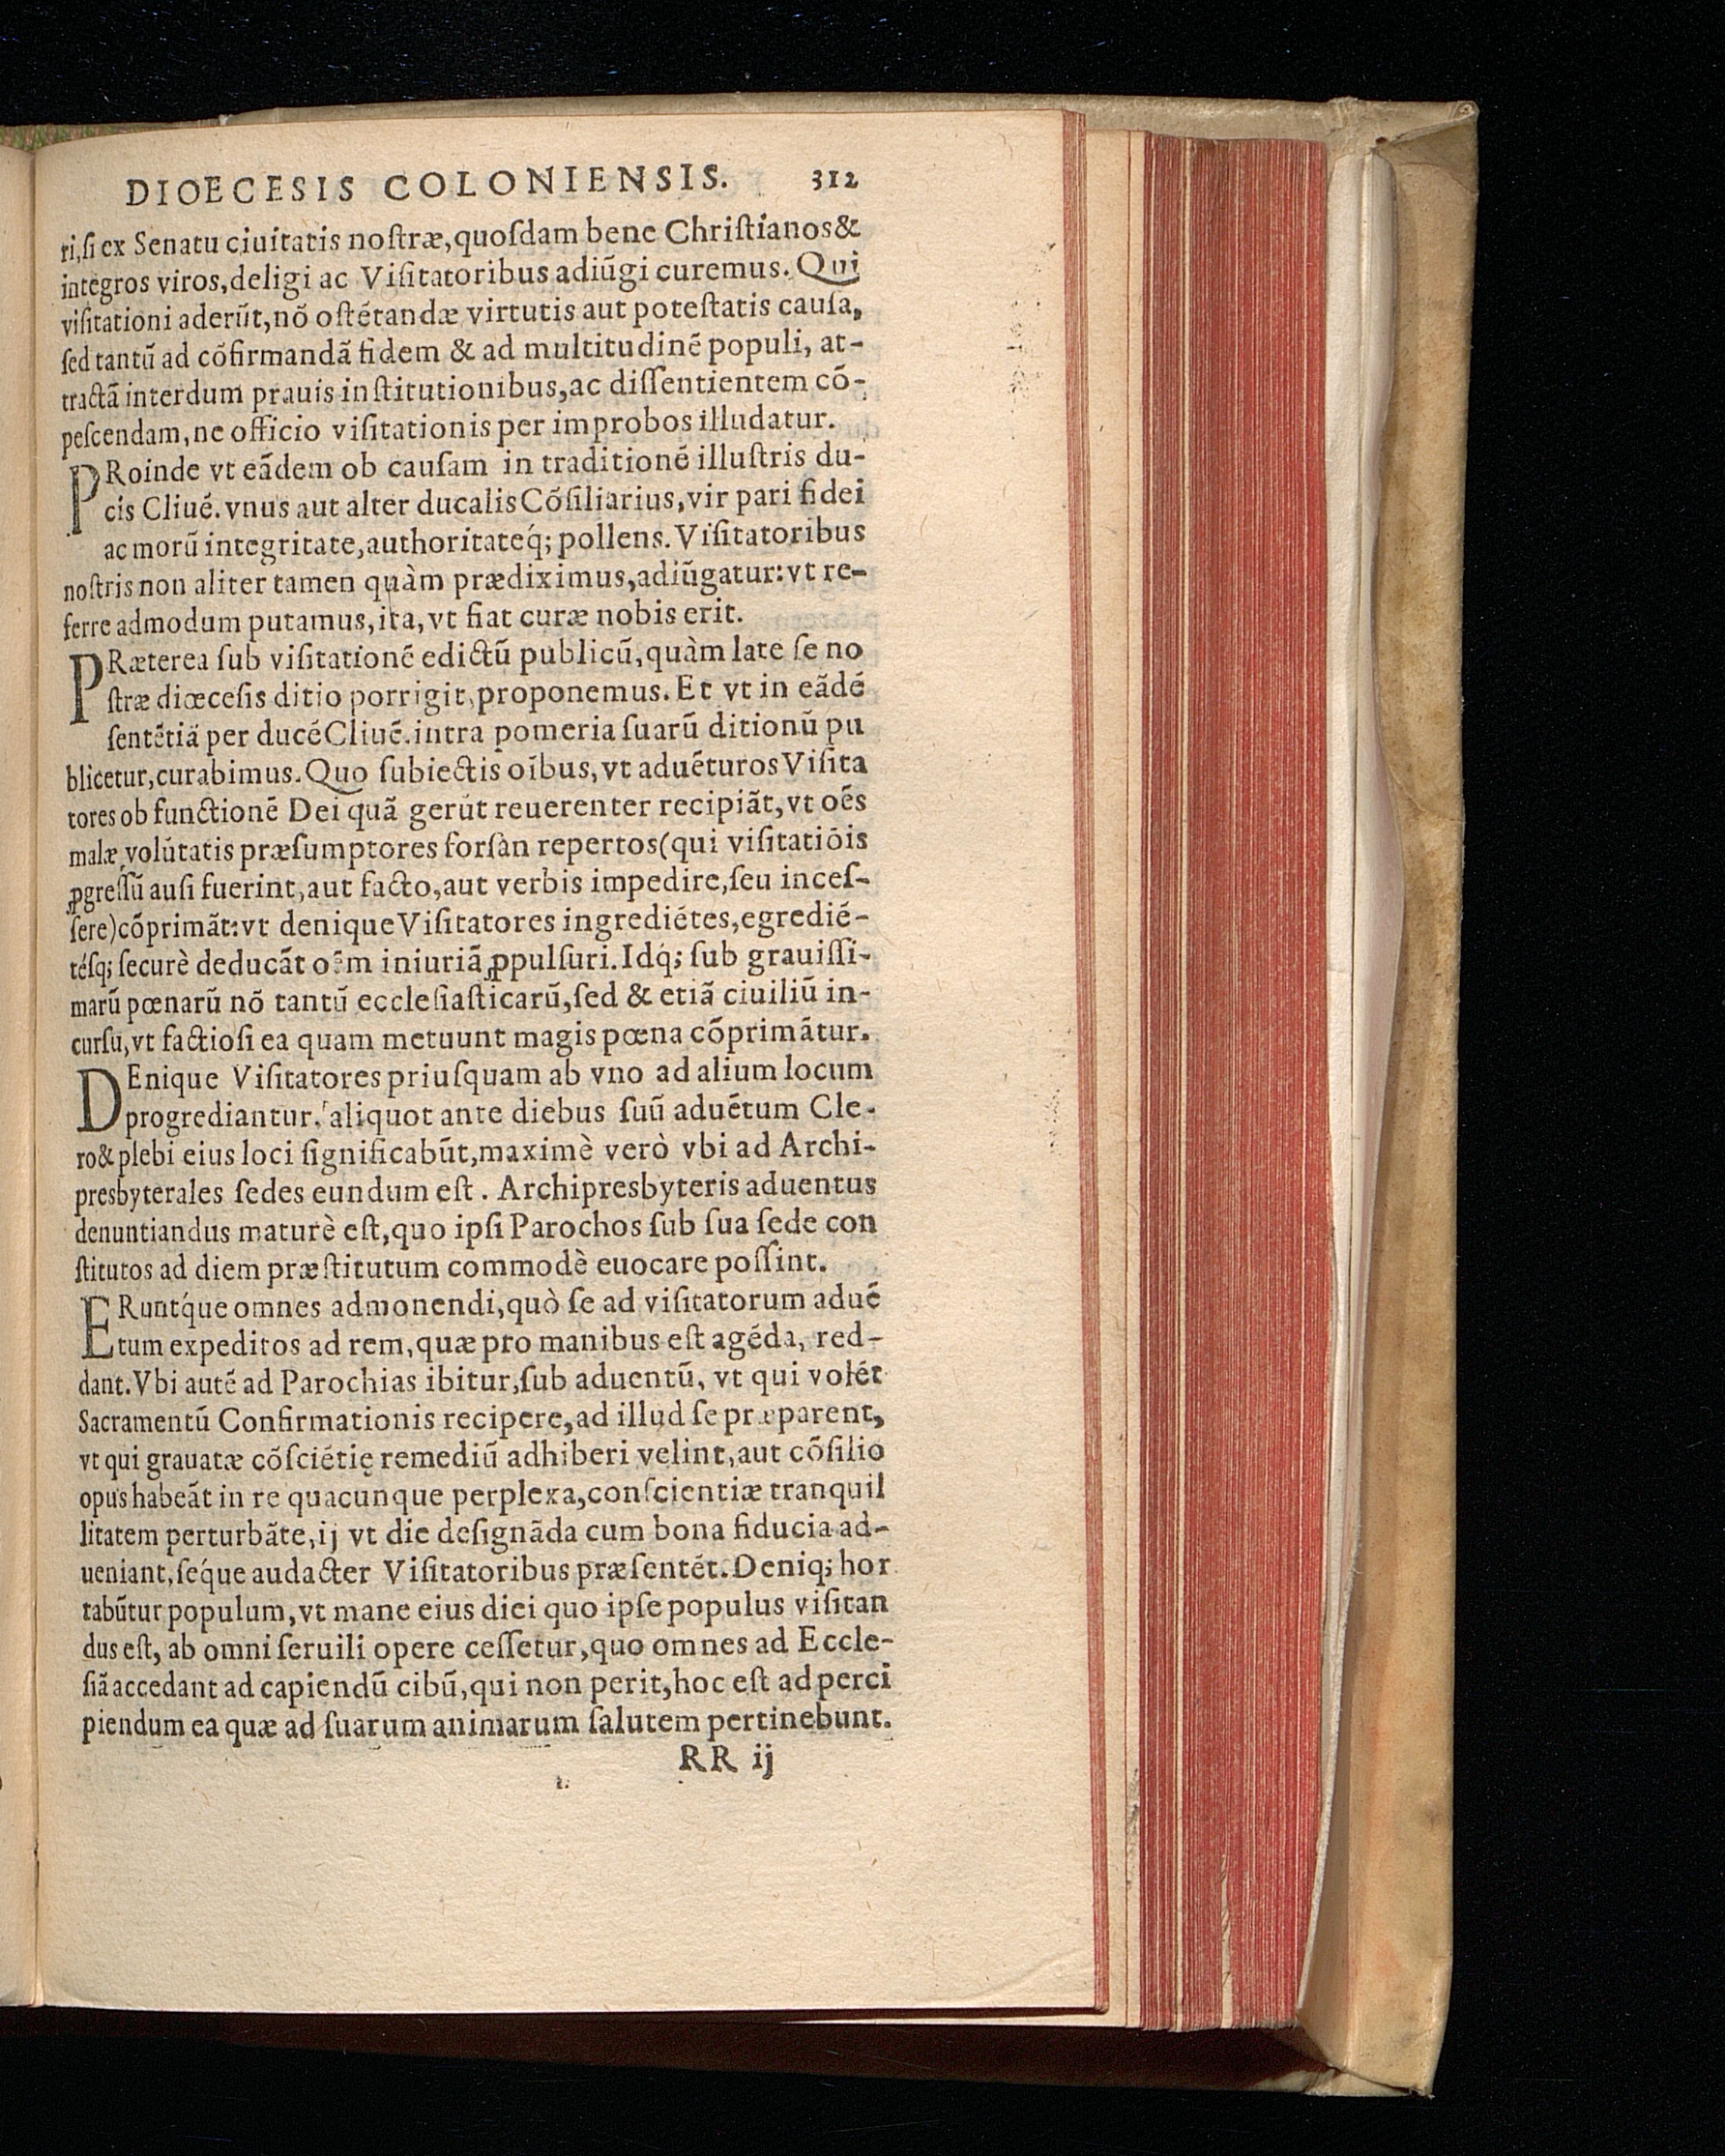 DIOECESIS COLONIENSIS. 312
ri,ſi ex Senatu ciuitatis noſtræ,quoſdam bene Chriſtianos&
integros viros,deligi ac Viſitatoribus adiũgi curemus. Qui
viſitationi aderũt,nõ oſtẽtandæ virtutis aut poteſtatis cauſa,
ſed tantũ ad cõfirmandã fidem & ad multitudinẽ populi, at-
tractã interdum prauis inſtitutionibus,ac diſſentientem cõ-
peſcendam,ne officio viſitationis per improbos illudatur.
PRoinde vt eãdem ob cauſam in traditionẽ illuſtris du-
cis Cliuẽ. vnus aut alter ducalis Cõſiliarius,vir pari fidei
ac morũ integritate,authoritateq́; pollens. Viſitatoribus
noſtris non aliter tamen quàm prædiximus,adiũgatur: vt re-
ferre admodum putamus,ita,vt fiat curæ nobis erit.
PRæterea ſub viſitationẽ edictũ publicũ,quàm late ſe no
ſtræ diœceſis ditio porrigit,proponemus. Et vt in eãdẽ
ſentẽtiã per ducẽ Cliuẽ.intra pomeria ſuarũ ditionũ pu
blicetur,curabimus. Quo ſubiectis oĩbus,vt aduẽturos Viſita
tores ob functionẽ Dei quã gerũt reuerenter recipiãt,vt oẽs
malæ volũtatis præſumptores forſàn repertos(qui viſitatiõis
ꝓgreſſũ auſi fuerint,aut facto,aut verbis impedire,ſeu inceſ-
ſere)cõprimãt: vt denique Viſitatores ingrediẽtes,egrediẽ-
tẽſq; ſecurè deducãt oẽm iniuriã ꝓpulſuri. Idq́; ſub grauiſſi-
marũ pœnarũ nõ tantũ eccleſiaſticarũ,ſed & etiã ciuiliũ in-
curſu,vt factioſi ea quam metuunt magis pœna cõprimãtur.
DEnique Viſitatores priuſquam ab vno ad alium locum
progrediantur, aliquot ante diebus ſuũ aduẽtum Cle-
ro& plebi eius loci ſignificabũt,maximè verò vbi ad Archi-
presbyterales ſedes eundum eſt. Archipresbyteris aduentus
denuntiandus maturè eſt,quo ipſi Parochos ſub ſua ſede con
ſtitutos ad diem præſtitutum commodè euocare poſſint.
ERuntq́ue omnes admonendi,quò ſe ad viſitatorum aduẽ
tum expeditos ad rem,quæ pro manibus eſt agẽda, red-
dant. Vbi autẽ ad Parochias ibitur,ſub aduentũ, vt qui volẽt
Sacramentũ Confirmationis recipere,ad illud ſe præparent,
vt qui grauatæ cõſciẽtię remediũ adhiberi velint,aut cõſilio
opus habeãt in re quacunque perplexa,conſcientiæ tranquil
litatem perturbãte,ij vt die deſignãda cum bona fiducia ad-
ueniant,ſéque audacter Viſitatoribus præſentẽt. Deniq; hor
tabũtur populum,vt mane eius diei quo ipſe populus viſitan
dus eſt, ab omni ſeruili opere ceſſetur,quo omnes ad Eccle-
ſiã accedant ad capiendũ cibũ,qui non perit,hoc eſt ad perci
piendum ea quæ ad ſuarum animarum ſalutem pertinebunt.
RR ij